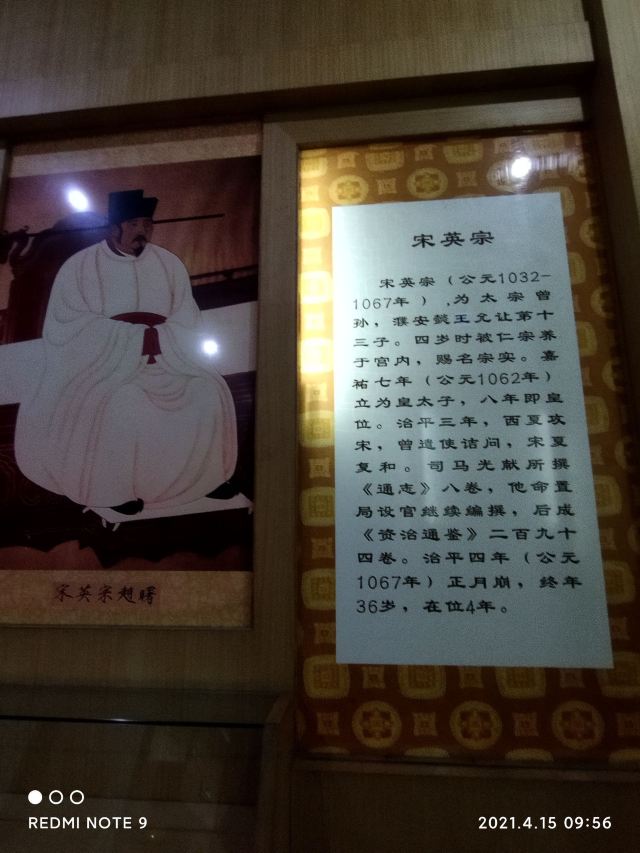 宋英宗
宋英宗（公元1032-
1067年），为太宗曾
孙，濮安懿王允让第十
三子。四岁时被仁宗养
于宫内，赐名宗实。嘉
祐七年（公元1062年）
立为皇太子，八年即皇
位。治平三年，西夏攻
宋，曾遣使诘问，宋夏
复和。司马光献所撰
《通志》八卷，他命置
局设官继续编撰，后成
《资治通鉴》二百九十
四卷。治平四年（公元
1067年）正月崩，终年
36岁，在位4年。
宋英宗赵曙
REDMI NOTE 9
2021.4.15 09:56